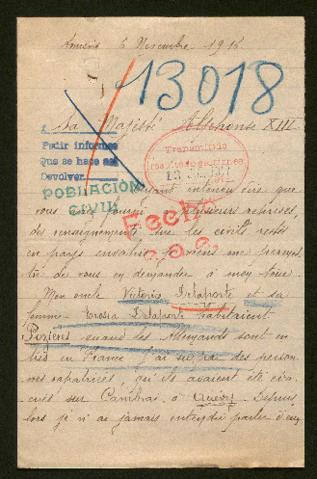 Amiens 6 Novembre 1916
13018
à Sa Majesté Alphonse XIII
Pedir informes
Que se hace así
Devolver
Transmitido
POBLACIÓN
CIVIL
ayant entendu dire que
vous avez fourni à plusieurs reprises,
des renseignements sur les civils restés
en pays envahis, je viens me permet-
tre de vous en demander à mon tour.
Mon oncle Victoria Delaporte et sa
femme Delaporte habitaient
Pozières quand les Allemands sont en-
trés en France. J'ai su par des person-
nes rapatriées, qu'ils avaient été éva-
cués sur Cambrai à Quiévy. Depuis
lors je n'ai jamais entendu parler d'eux